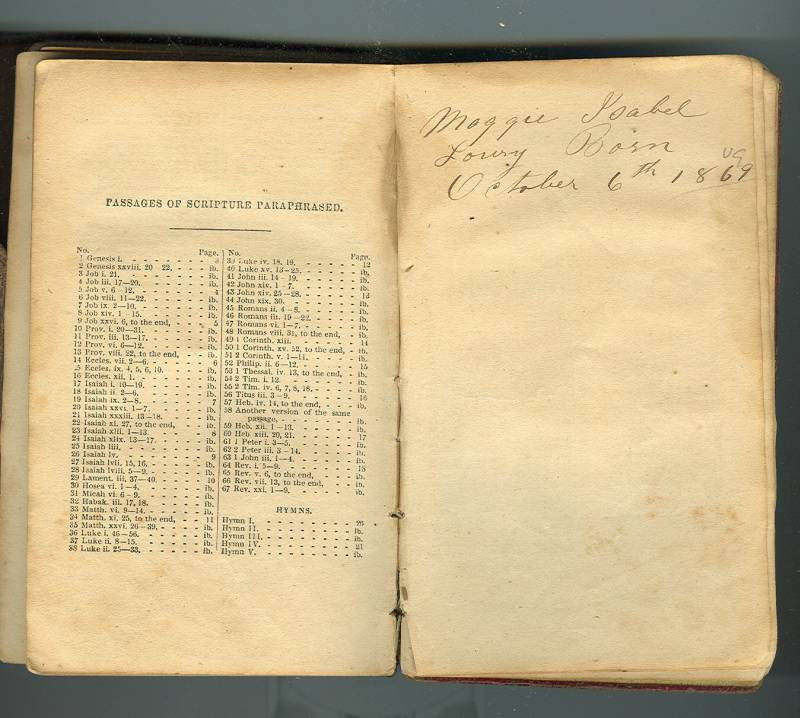 PASSAGES OF SCRIPTURE PARAPHRASED.
No. Page.
1 Genesis i. 3
2 Genesis xxviii. 20—22. ib.
3 Job i. 21. ib.
4 Job iii. 17—20. ib.
5 Job v. 6—12. 4
6 Job viii. 11—22. ib.
7 Job ix. 2—10. ib.
8 Job xiv. 1—15. ib.
9 Job xxvi. 6, to the end, 5
10 Prov. i. 20—31. ib.
11 Prov. iii. 13—17. ib.
12 Prov. vi. 6—12. ib.
13 Prov. viii. 22, to the end, ib.
14 Eccles. vii. 2—6. 6
.5 Eccles. ix. 4, 5, 6, 10. ib.
16 Eccles. xii. 1. ib.
17 Isaiah i. 10—19. ib.
18 Isaiah ii 2—6. ib.
19 Isaiah ix. 2—8. 7
20 Isaiah xxvi. 1—7. ib.
21 Isaiah xxxiii. 13—18. ib.
22 Isaiah xl. 27, to the end, ib.
23 Isaiah xlii. 1—13. 8
24 Isaiah xlix. 13—17. ib.
25 Isaiah liii. ib.
26 Isaiah lv. 9
27 Isaiah lvii. 15, 16. ib.
28 Isaiah lviii. 5—9. ib.
29 Lament. iii. 37—40. 10
30 Hosea vi. 1—4. ib.
31 Micah vi. 6—9. ib.
32 Habak. iii. 17, 18. ib.
33 Matth. vi. 9—14. ib.
34 Matth. xi. 25, to the end, 11
35 Matth. xxvi. 26—39. ib.
36 Luke i. 46—56. ib.
37 Luke ii. 8—15. ib.
38 Luke ii. 25—33. ib.
No. Page.
39 Luke iv. 18, 19. 12
40 Luke xv. 13—25. ib.
41 John iii. 14—19. ib.
42 John xiv. 1—7. ib.
43 John xiv. 25—28. 13
44 John xix. 30. ib.
45 Romans ii. 4—8. ib.
46 Romans iii. 19—22. ib.
47 Romans vi. 1—7. ib.
48 Romans viii. 31, to the end, ib.
49 1 Corinth. xiii. 14
50 1 Corinth. xv. 52, to the end, ib.
51 2 Corinth. v. 1—11. ib.
52 Philip. ii. 6—12. 15
53 1 Thessal. iv. 13, to the end, ib.
54 2 Tim. i. 12. ib.
55 2 Tim. iv. 6, 7, 8, 18. ib.
56 Titus iii. 3—9. 16
57 Heb. iv. 14, to the end, ib.
58 Another version of the same
passage, ib.
59 Heb. xii. 1—13. ib.
60 Heb. xiii. 20, 21. 17
61 1 Peter i. 3—5. ib.
62 2 Peter iii. 3—14. ib.
63 1 John iii. 1—4. ib.
64 Rev. i. 5—9. 18
65 Rev. v. 6, to the end, ib.
66 Rev. vii. 13, to the end, ib.
67 Rev. xxi. 1—9. ib.
HYMNS.
Hymn I. 20
Hymn II. ib.
Hymn III. ib.
Hymn IV. 21
Hymn V. ib.
Maggie Isabel
Lowry Born
October 6th 1869